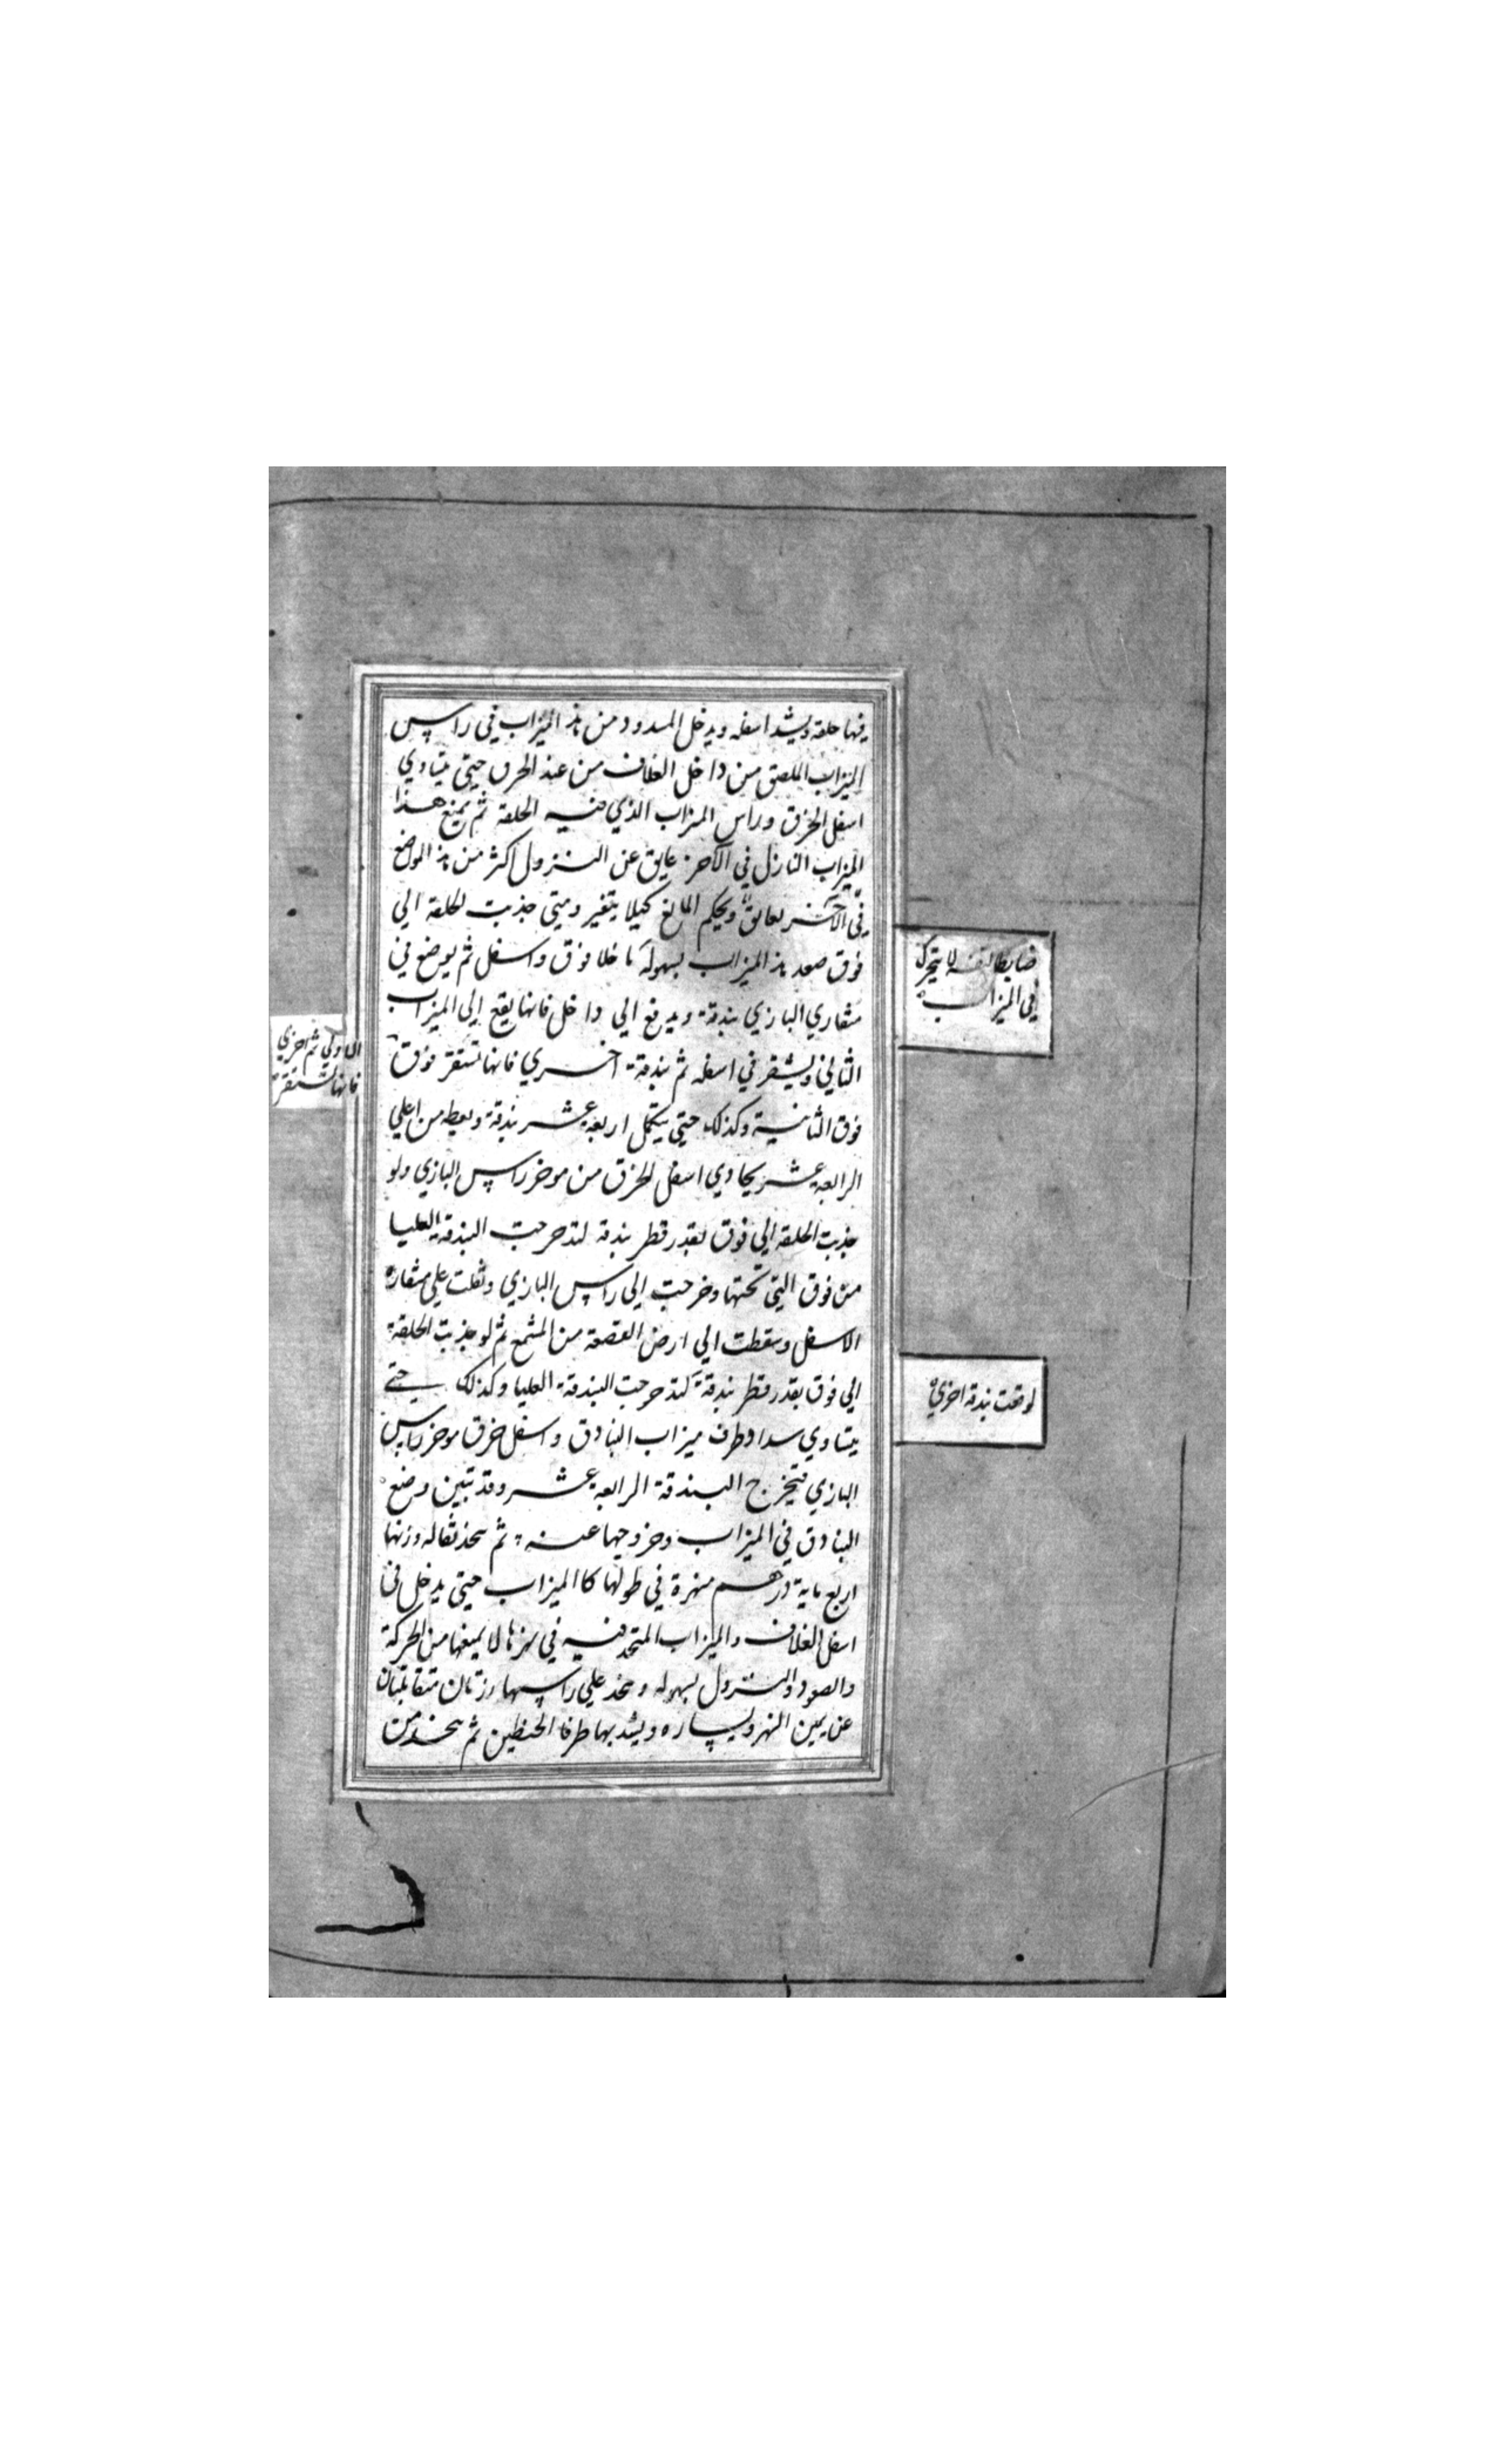 فيها حلقه ويشد اسفله ويدخل المسدود من هذ الميزاب في راس
الميزاب الملصق من داخل الغلاف من عند الخرق حتي يتساوي
اسفل الخرق وراس الميزاب الذي فيه الحلقة ثم يمنع هذا
الميزاب النازل في الآخر عايق عن النزول اكثر من هذ الموضع
في الآخر لعايق ويحكم المانع كيلا يتغير ومتي جذبت الحلقة الي
فوق صعد هذ الميزاب بسهولة ما خلا فوق واسفل ثم يوضع في
منقاري البازي بندقة ويدفع الي داخل فانها يقع إلي الميزاب
الثاني ويستقر في اسفله ثم بندقة اخري فانها تستقر فوق
فوق الثانية وكذلك حتي يتكمل اربعة عشر بندقة ويعطه من اعلي
الرابعة عشر يحاوي اسفل الخرق من موخر راس البازي ولو
جذبت الحلقة الي فوق بقدر قطر بندقة لتدحرجت البندقة العليا
من فوق التي تحتها وخرجت إلي راس البازي وثقلت علي منقاره
الاسفل وسقطت الي ارض القصعة من المشمع ثم لو جذبت الحلقة
الي فوق بقدر قطر بندقة لتدحرجت البندقة العليا وكذلك حتي
يتساوي سداد طرف ميزاب البنادق واسفل خرق موخر راس
البازي فتخرج البندقة الرابعة عشر وقد تبين وضع
البنادق في الميزاب وخروجها عنه ثم يتخذ ثقاله وزنها
اربع ماية درهم منهرة في طولها كالميزاب حتي يدخل في
اسفل الغلاف والميزاب المتحد فيه في نهرها لا يمنعها من الحركة
والصعود والنزول بسهوله ويتخذ علي راسها رزتان متقابلتان
عن يمين النهر ويساره ويشد بها طرفا الخيطين ثم يتخذ من
لا يتحرك
في الميزاب
الاولي ثم اخري
فانها تستقر
لوقعت بندقة اخري